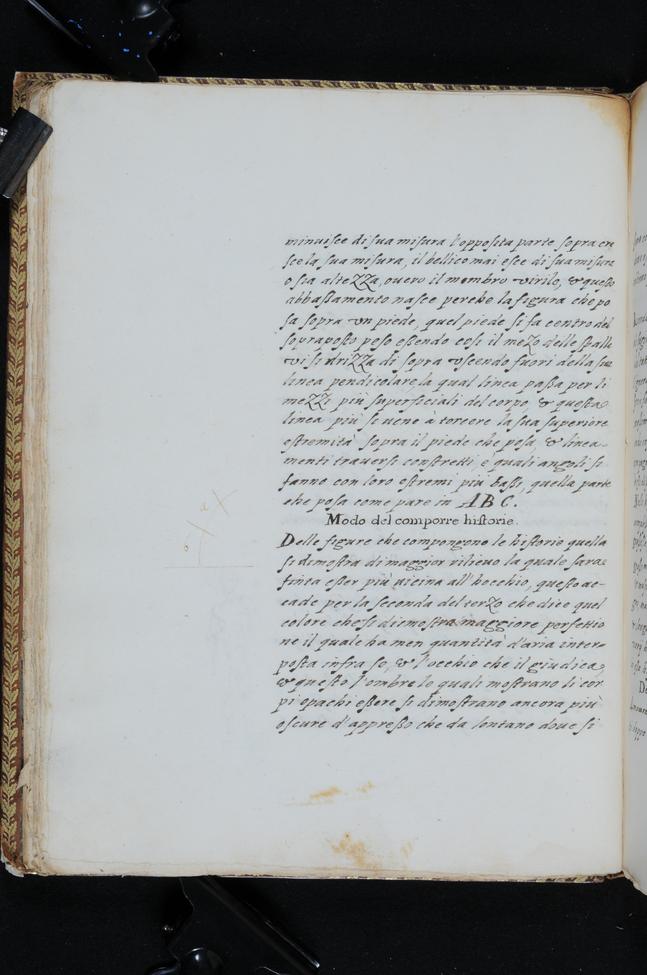 minuisce di sua misura l'opposita parte sopra cre
sce la sua misura, il bellico mai esce di sua misura
o sia altezza, overo il membro virile, & questo
abbassamento nasce perche la figura che po
sa sopra un piede, quel piede si fa centro del
sopraposto peso essendo cosi il mezo delle spalle
vi si drizza di sopra uscendo fuori della sua
linea pendicolare la qual linea passa per li
mezzi più superficiali del corpo & questa
linea più se vene à torcere la sua superiore
estremità sopra il piede che posa, & linea-
menti traversi constretti, e quali angoli si
fanno con loro estremi più bassi, quella parte
che posa come pare in ABC.
Modo del comporre historie.
Delle figure che compongono le historie quella
si dimostra di maggior rilievo la quale sara
finta esser più vicina all'hocchio, questo ac-
cade per la seconda del terzo che dice quel
colore che si diemostra maggiore perfettio
ne il quale ha men quantità d'aria inter-
posta infra se, & l'occhio che il giudica,
& questo, l'ombre le quali mostrano li cor
pi opachi essere si dimostrano ancora più
oscure d'appresso che da lontano dove si
a